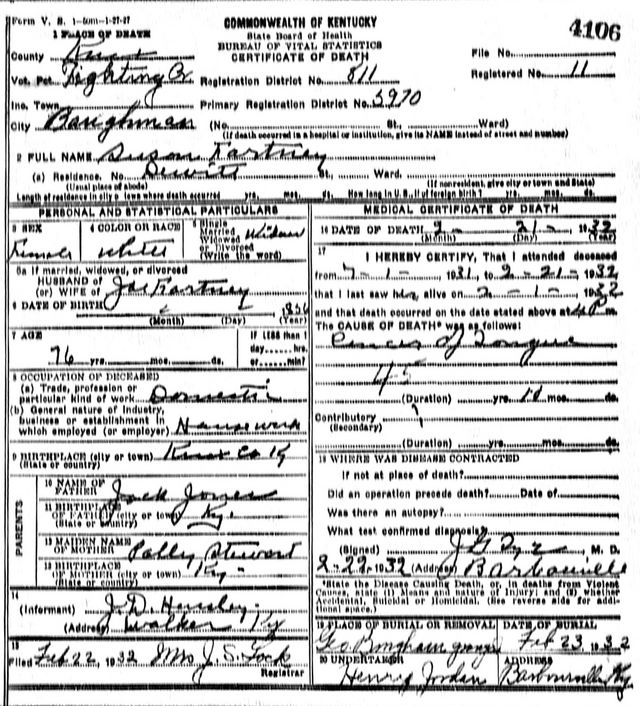 Form V. S. 1-50m-1-27-27
COMMONWEALTH OF KENTUCKY
State Board of Health
BUREAU OF VITAL STATISTICS
CERTIFICATE OF DEATH
4106
1 PLACE OF DEATH
County Knox
File No.
Vot. Pct. Fighting Cr. Registration District No. 811
Registered No. 11
Inc. Town Primary Registration District No. 5970
City Baughman (No. St., Ward)
(If death occurred in a hospital or institution, give its NAME instead of street and number)
2 FULL NAME Susan Kartney
(a) Residence. No. Dewitt St., Ward.
(Usual place of abode) (If nonresident, give city or town and State)
Length of residence in city or town where death occurred yrs. mos. ds. How long in U. S., if of foreign birth? yrs. mos. ds.
PERSONAL AND STATISTICAL PARTICULARS
3 SEX Female
4 COLOR OR RACE White
5 Single Married Widowed or Divorced (Write the word) Widow
5a If married, widowed, or divorced
HUSBAND of
(or) WIFE of Joe Kartney
6 DATE OF BIRTH 1856
(Month) (Day) (Year)
7 AGE 76 yrs. mos. ds.
If LESS than 1 day hrs. or min?
8 OCCUPATION OF DECEASED
(a) Trade, profession or particular kind of work Domestic
(b) General nature of industry, business or establishment in which employed (or employer) Housework
9 BIRTHPLACE (city or town) Knox Co Ky
(State or country)
PARENTS
10 NAME OF FATHER Jack Jones
11 BIRTHPLACE OF FATHER (city or town) Ky.
(State or country)
12 MAIDEN NAME OF MOTHER Polley Stewart
13 BIRTHPLACE OF MOTHER (city or town) Ky.
(State or country)
14
(Informant) J. D. Hensley
(Address) Walker Ky
15
Filed Feb 22 1932 Mrs J. S. Lock
Registrar
MEDICAL CERTIFICATE OF DEATH
16 DATE OF DEATH 2- 21- 1932
(Month) (Day) (Year)
17
I HEREBY CERTIFY, That I attended deceased
from 7-1- 1931, to 2-21- 1932
that I last saw her alive on 2-1- 1932
and that death occurred on the date stated above at P m.
The CAUSE OF DEATH* was as follows:
Cancer of Tongue
45
(Duration) yrs. mos. ds.
Contributory
(Secondary)
(Duration) yrs. mos. ds.
18 WHERE WAS DISEASE CONTRACTED
If not at place of death?
Did an operation precede death? Date of
Was there an autopsy?
What test confirmed diagnosis?
(Signed) J G Tye, M. D.
2-29-1932 (Address) Barbourville
*State the Disease Causing Death, or, in deaths from Violent Causes, state (1) Means and nature of Injury; and (2) whether Accidental, Suicidal or Homicidal. (See reverse side for additional space.)
19 PLACE OF BURIAL OR REMOVAL
Geo Bingham
DATE OF BURIAL
Feb 23 1932
20 UNDERTAKER
Henry Jordan
ADDRESS
Barbourville Ky.